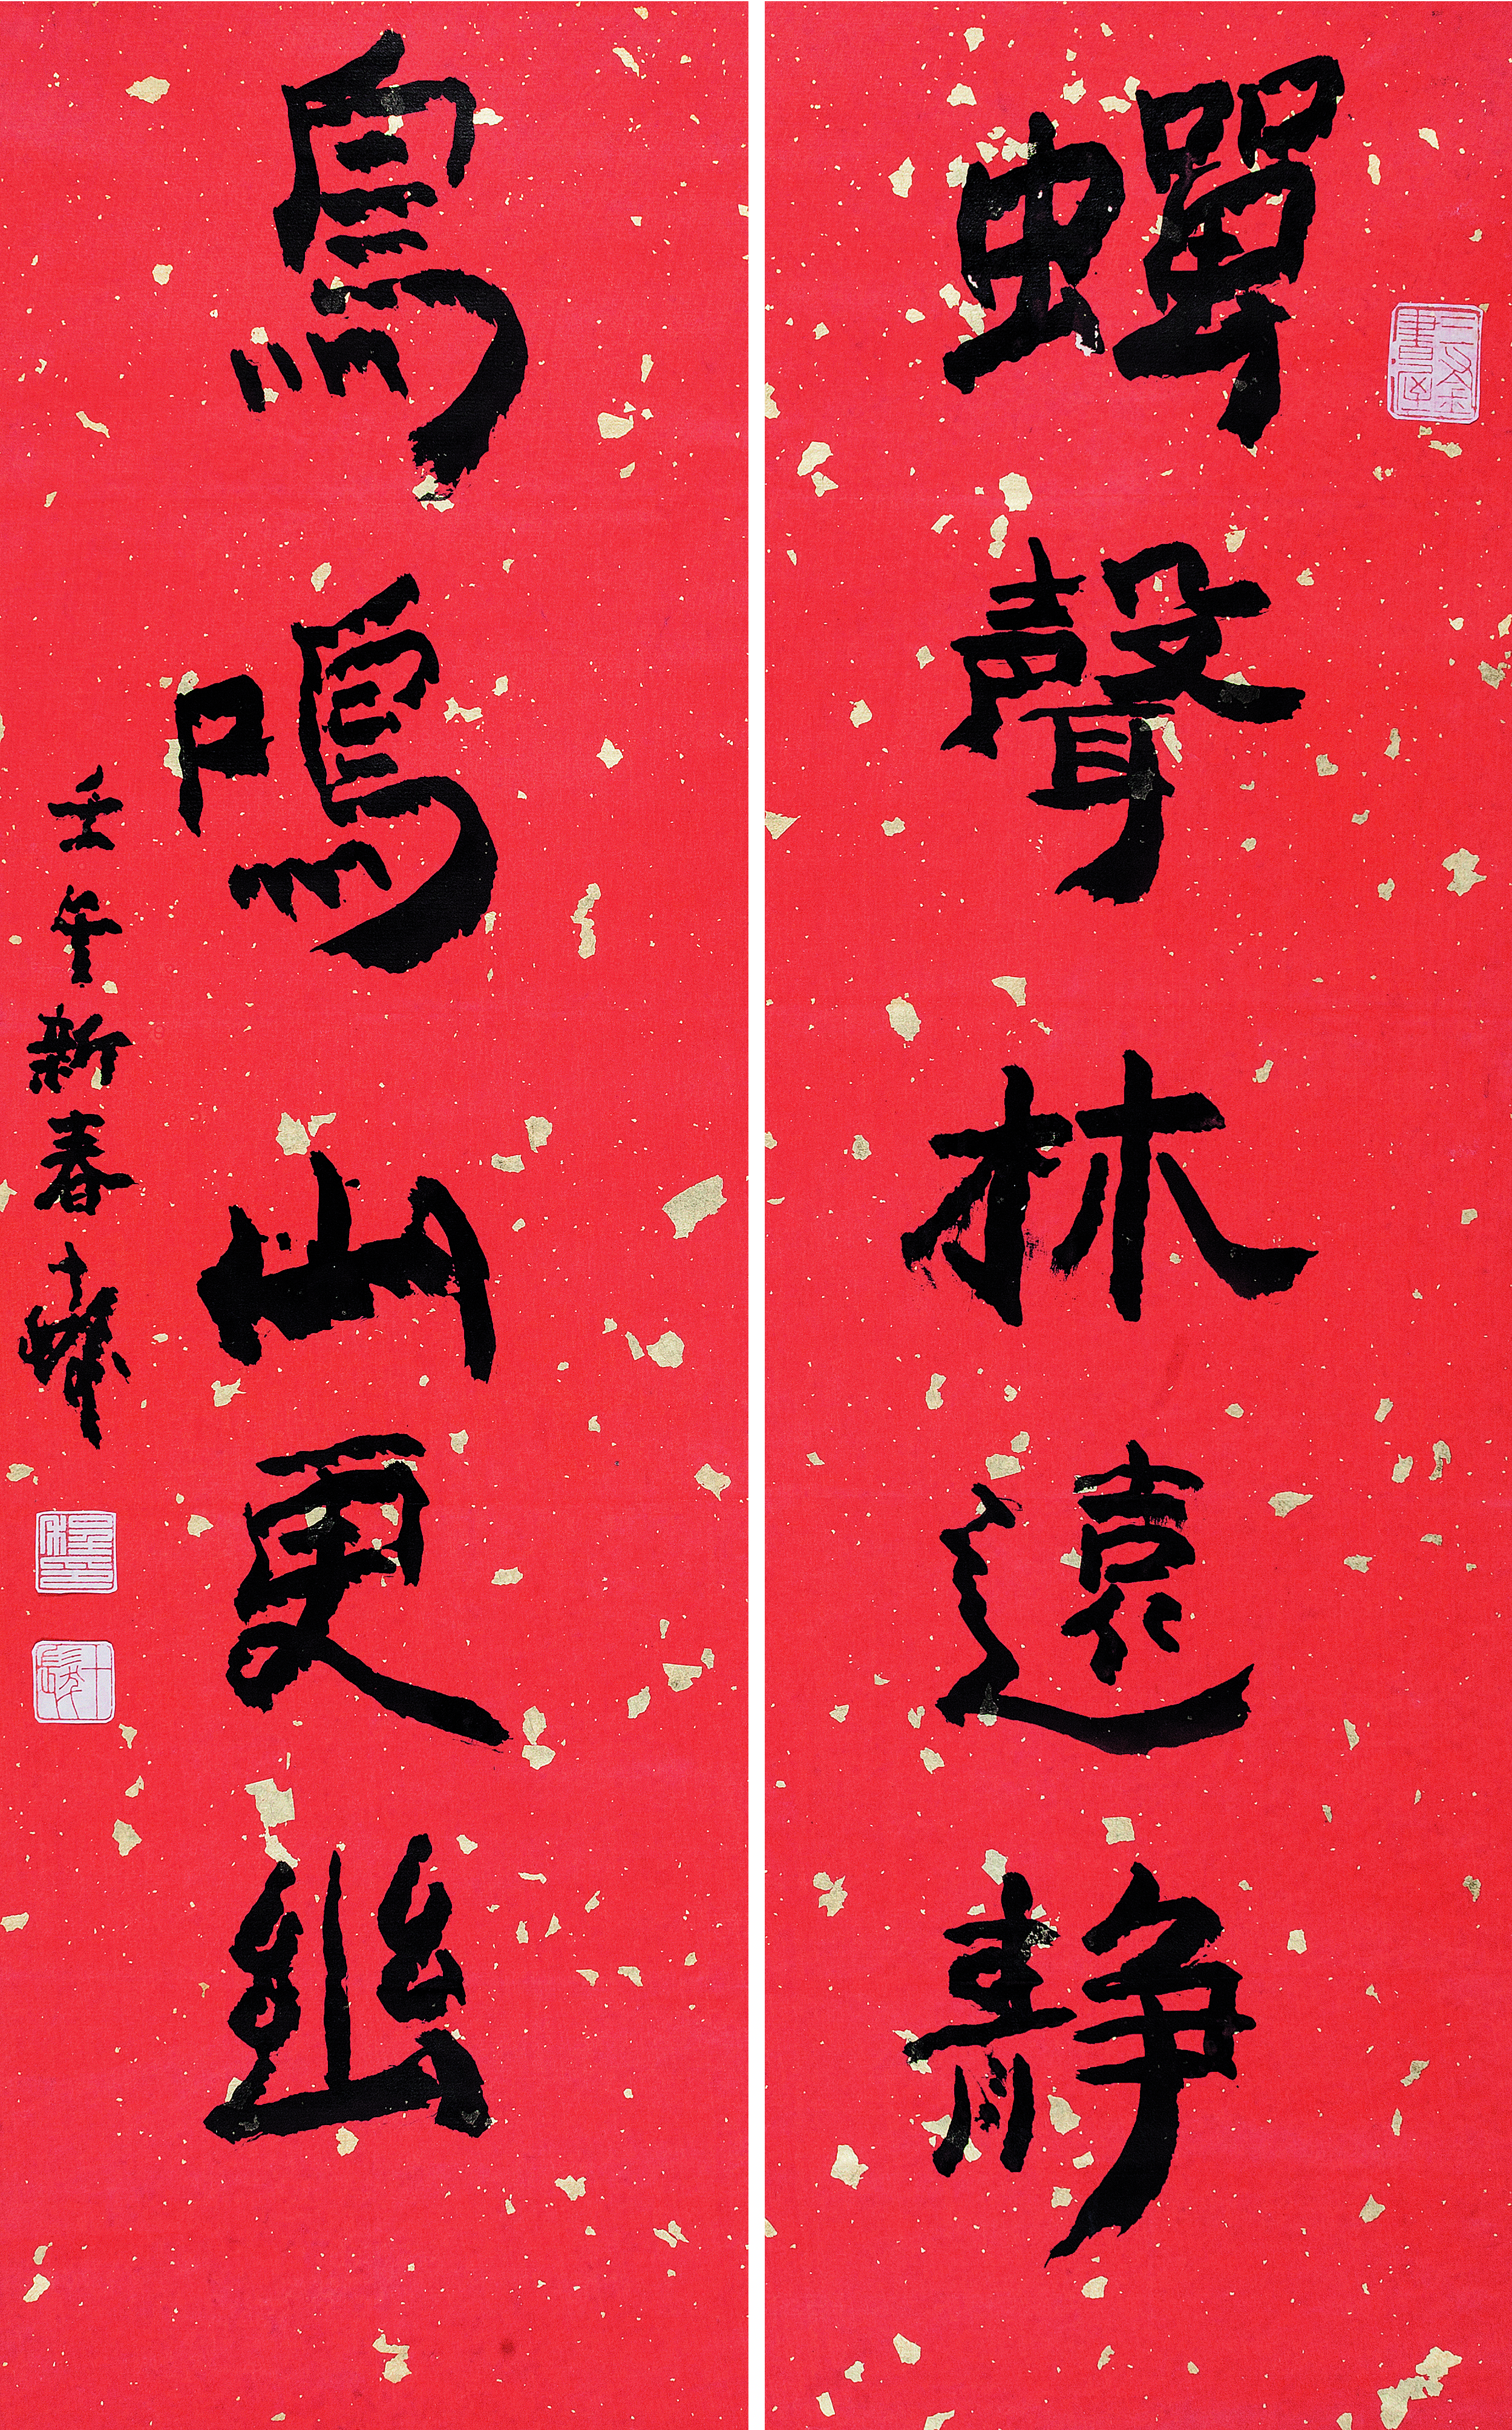 蟬聲林遠靜
鳥鳴山更幽
壬午新春